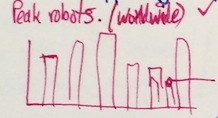 Peak robots. (worldwide)